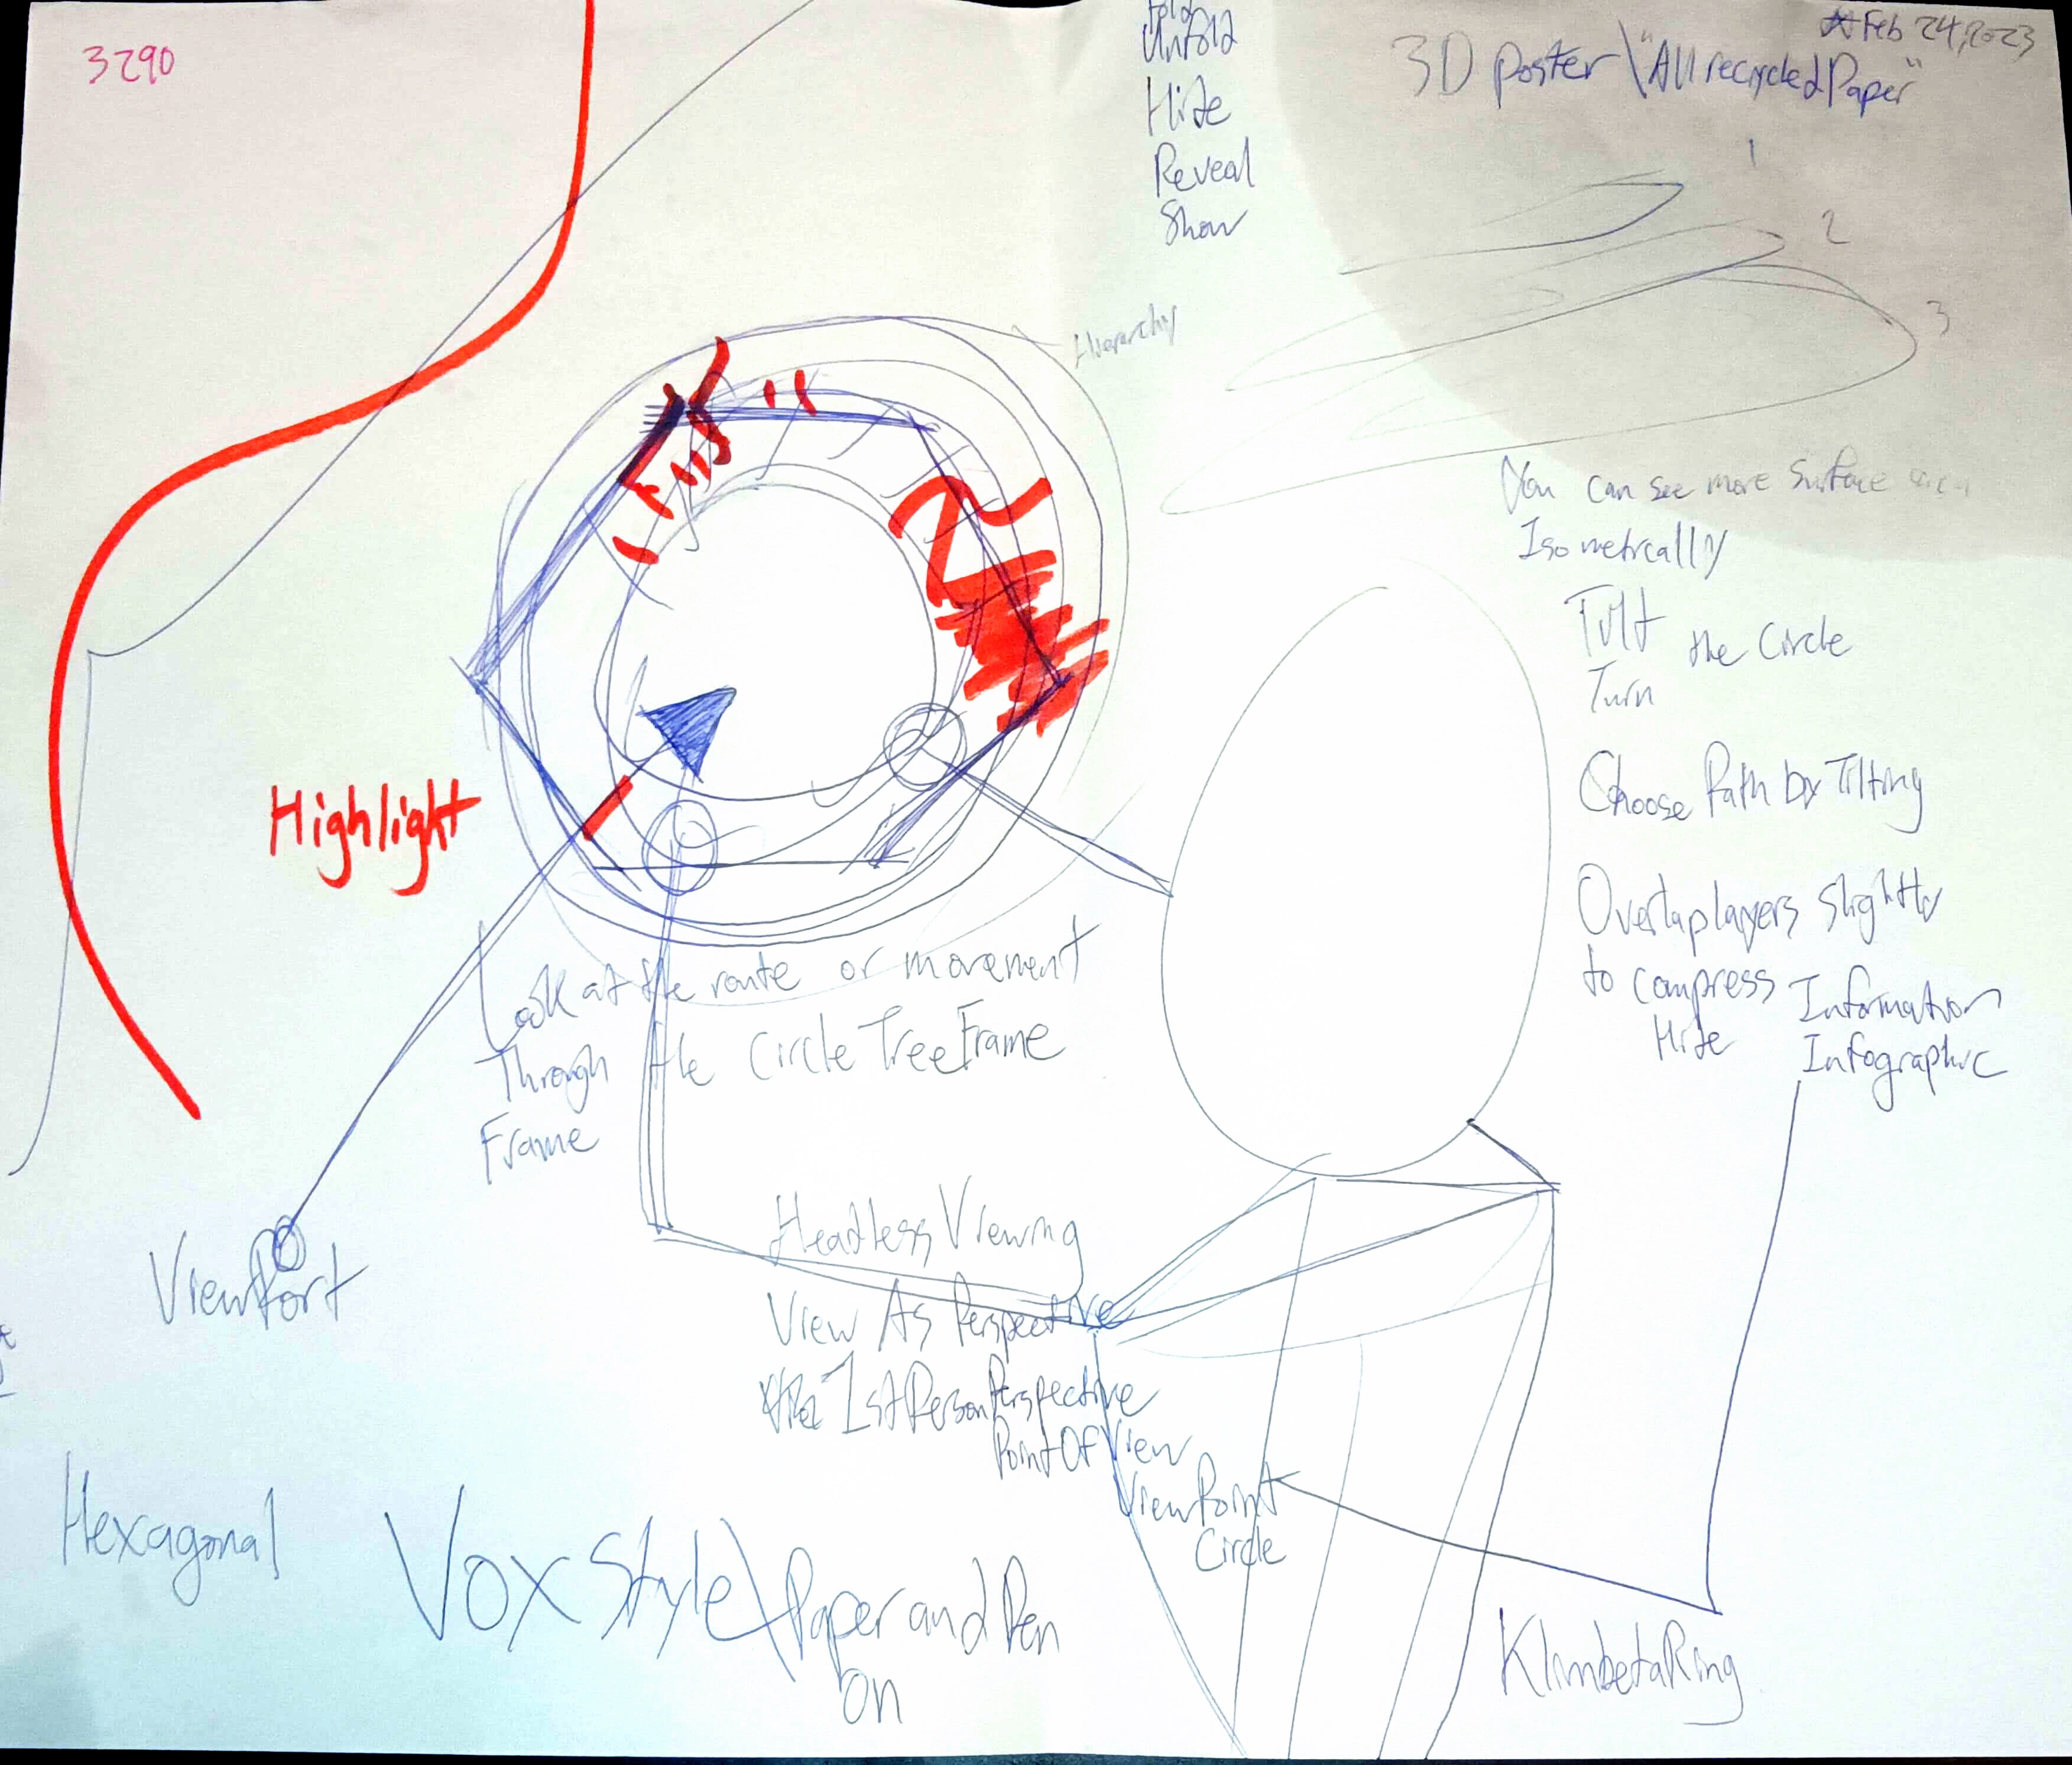 3290
Feb 24, 2023
3D poster \ "All recycled Paper"
Unfold
Hide
Reveal
Show
1
2
3
Hierarchy
You can see more surface
Isometrically
Tilt
the Circle
Turn
Choose Path by Tilting
Overlap layers slightly
to compress
Hide
Information
Infographic
Highlight
Look at the route or movement
Through the Circle Tree Frame
Frame
ViewPort
Headless Viewing
View As Perspective
1st Person Perspective
Point Of View
ViewPoint
Circle
Hexagonal
Vox Style \ Paper and Pen
on
KlimbetaRing